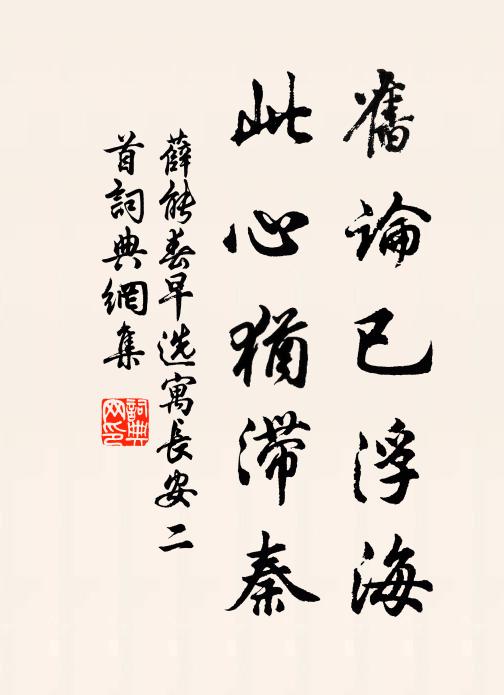 舊論已浮海
此心猶滯秦
薛能春早选寓長安二
首詞典網集
詞典
网印